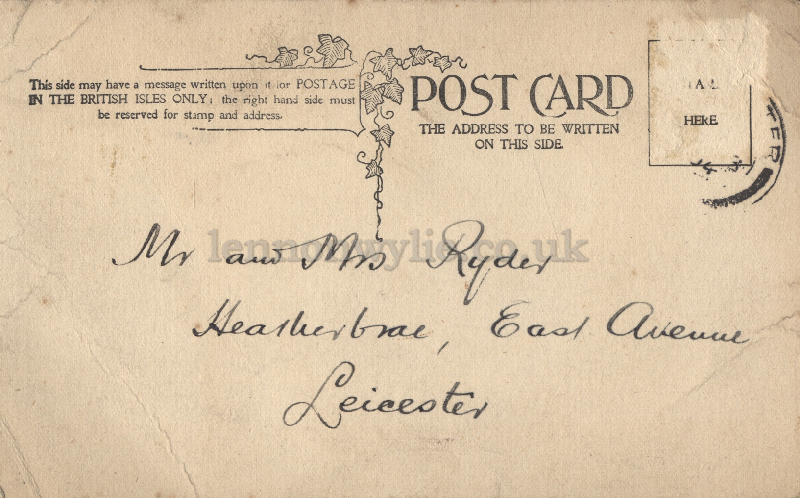 This side may have a message written upon it for POSTAGE
IN THE BRITISH ISLES ONLY; the right hand side must
be reserved for stamp and address.
POST CARD
THE ADDRESS TO BE WRITTEN
ON THIS SIDE.
HERE.
TER
04
lennonwylie.co.uk
Mr and Mrs Ryder
Heatherbrae, East Avenue
Leicester